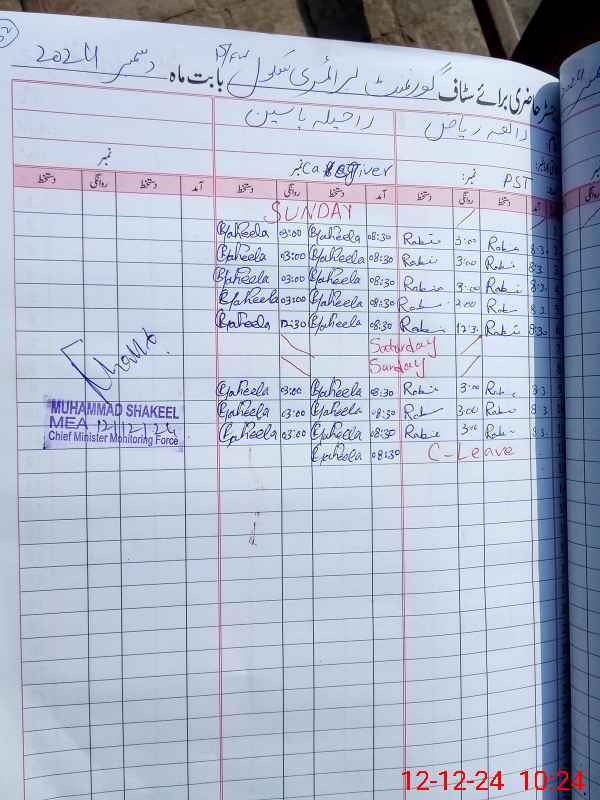 دسمبر 2024 بابت ماہ گورنمنٹ پرائمری سکول حاضری برائے سٹاف
راحیلہ یاسین رابعہ ریاض
نمبر نمبر Caregiver نمبر: PST
دستخط روانگی دستخط آمد دستخط روانگی دستخط آمد دستخط روانگی دستخط آمد
SUNDAY
Raheela 03:00 Raheela 08:30 Rabia 3:00 Rabia 8:3
Raheela 03:00 Raheela 08:30 Rabia 3:00 Rabia 8:3
Raheela 03:00 Raheela 08:30 Rabia 3:00 Rabia 8:3
Raheela 03:00 Raheela 08:30 Rabia 3:00 Rabia 8:3
Raheela 12:30 Raheela 08:30 Rabia 12:3 Rabia 8:30
Saturday
Sunday
Raheela 03:00 Raheela 08:30 Rabia 3:00 Rabia 8:3
Raheela 03:00 Raheela 08:30 Rabia 3:00 Rabia 8:3
Raheela 03:00 Raheela 08:30 Rabia 3:00 Rabia 8:3
Raheela 08:30 C-Leave
MUHAMMAD SHAKEEL
MEA 12/12/24
Chief Minister Monitoring Force
12-12-24 10:24